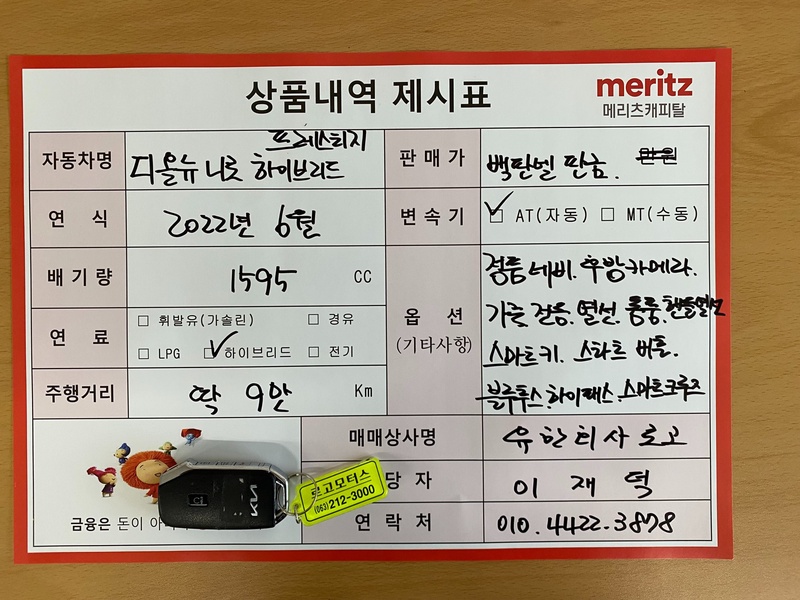 상품내역 제시표
meritz
메리츠캐피탈
자동차명
프레스티지
디올뉴 니로 하이브리드
판매가
백판넬 판금. 만원
연 식
2022년 6월
변속기
AT(자동) MT(수동)
배기량
1595 CC
연 료
휘발유(가솔린) 경유
LPG 하이브리드 전기
주행거리
딱 9만 Km
옵 션
(기타사항)
정품네비. 후방카메라.
가죽 전동. 열선. 통풍. 핸들열선
스마트키. 스타트 버튼.
블루투스. 하이패스. 스마트크루즈
매매상사명
유한회사 로고
당 자
이 재 덕
연 락 처
010.4422.3878
금융은 돈이 아
KIA
로고모터스
(063)212-3000